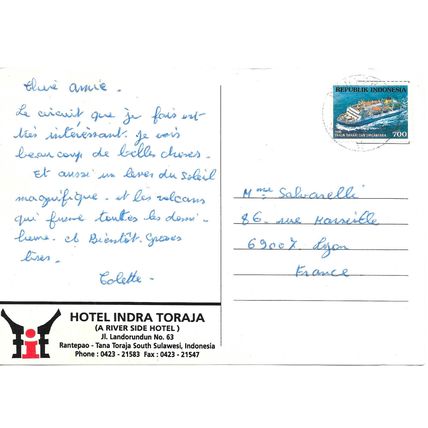 Chère amie.
Le circuit que je fais est
très intéressant. je vois
beaucoup de belles choses.
Et aussi un lever du soleil
magnifique. et les volcans
qui fume toutes les demi-
heure. et Bientôt. Grosses
bises.
Colette -
REPUBLIK INDONESIA
700
Mme Salvarelli
86. rue Marseille
69007. Lyon
France.
HOTEL INDRA TORAJA
(A RIVER SIDE HOTEL)
Jl. Landorundun No. 63
Rantepao - Tana Toraja South Sulawesi, Indonesia
Phone : 0423 - 21583 Fax : 0423 - 21547